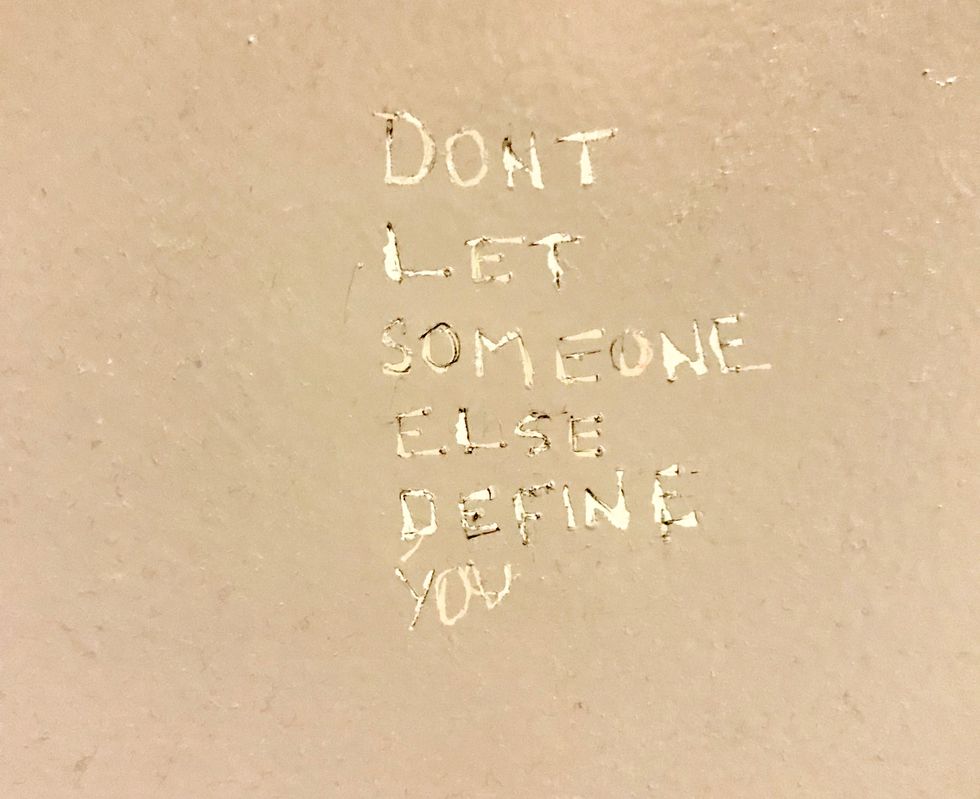 DONT
LET
SOMEONE
ELSE
DEFINE
YOU